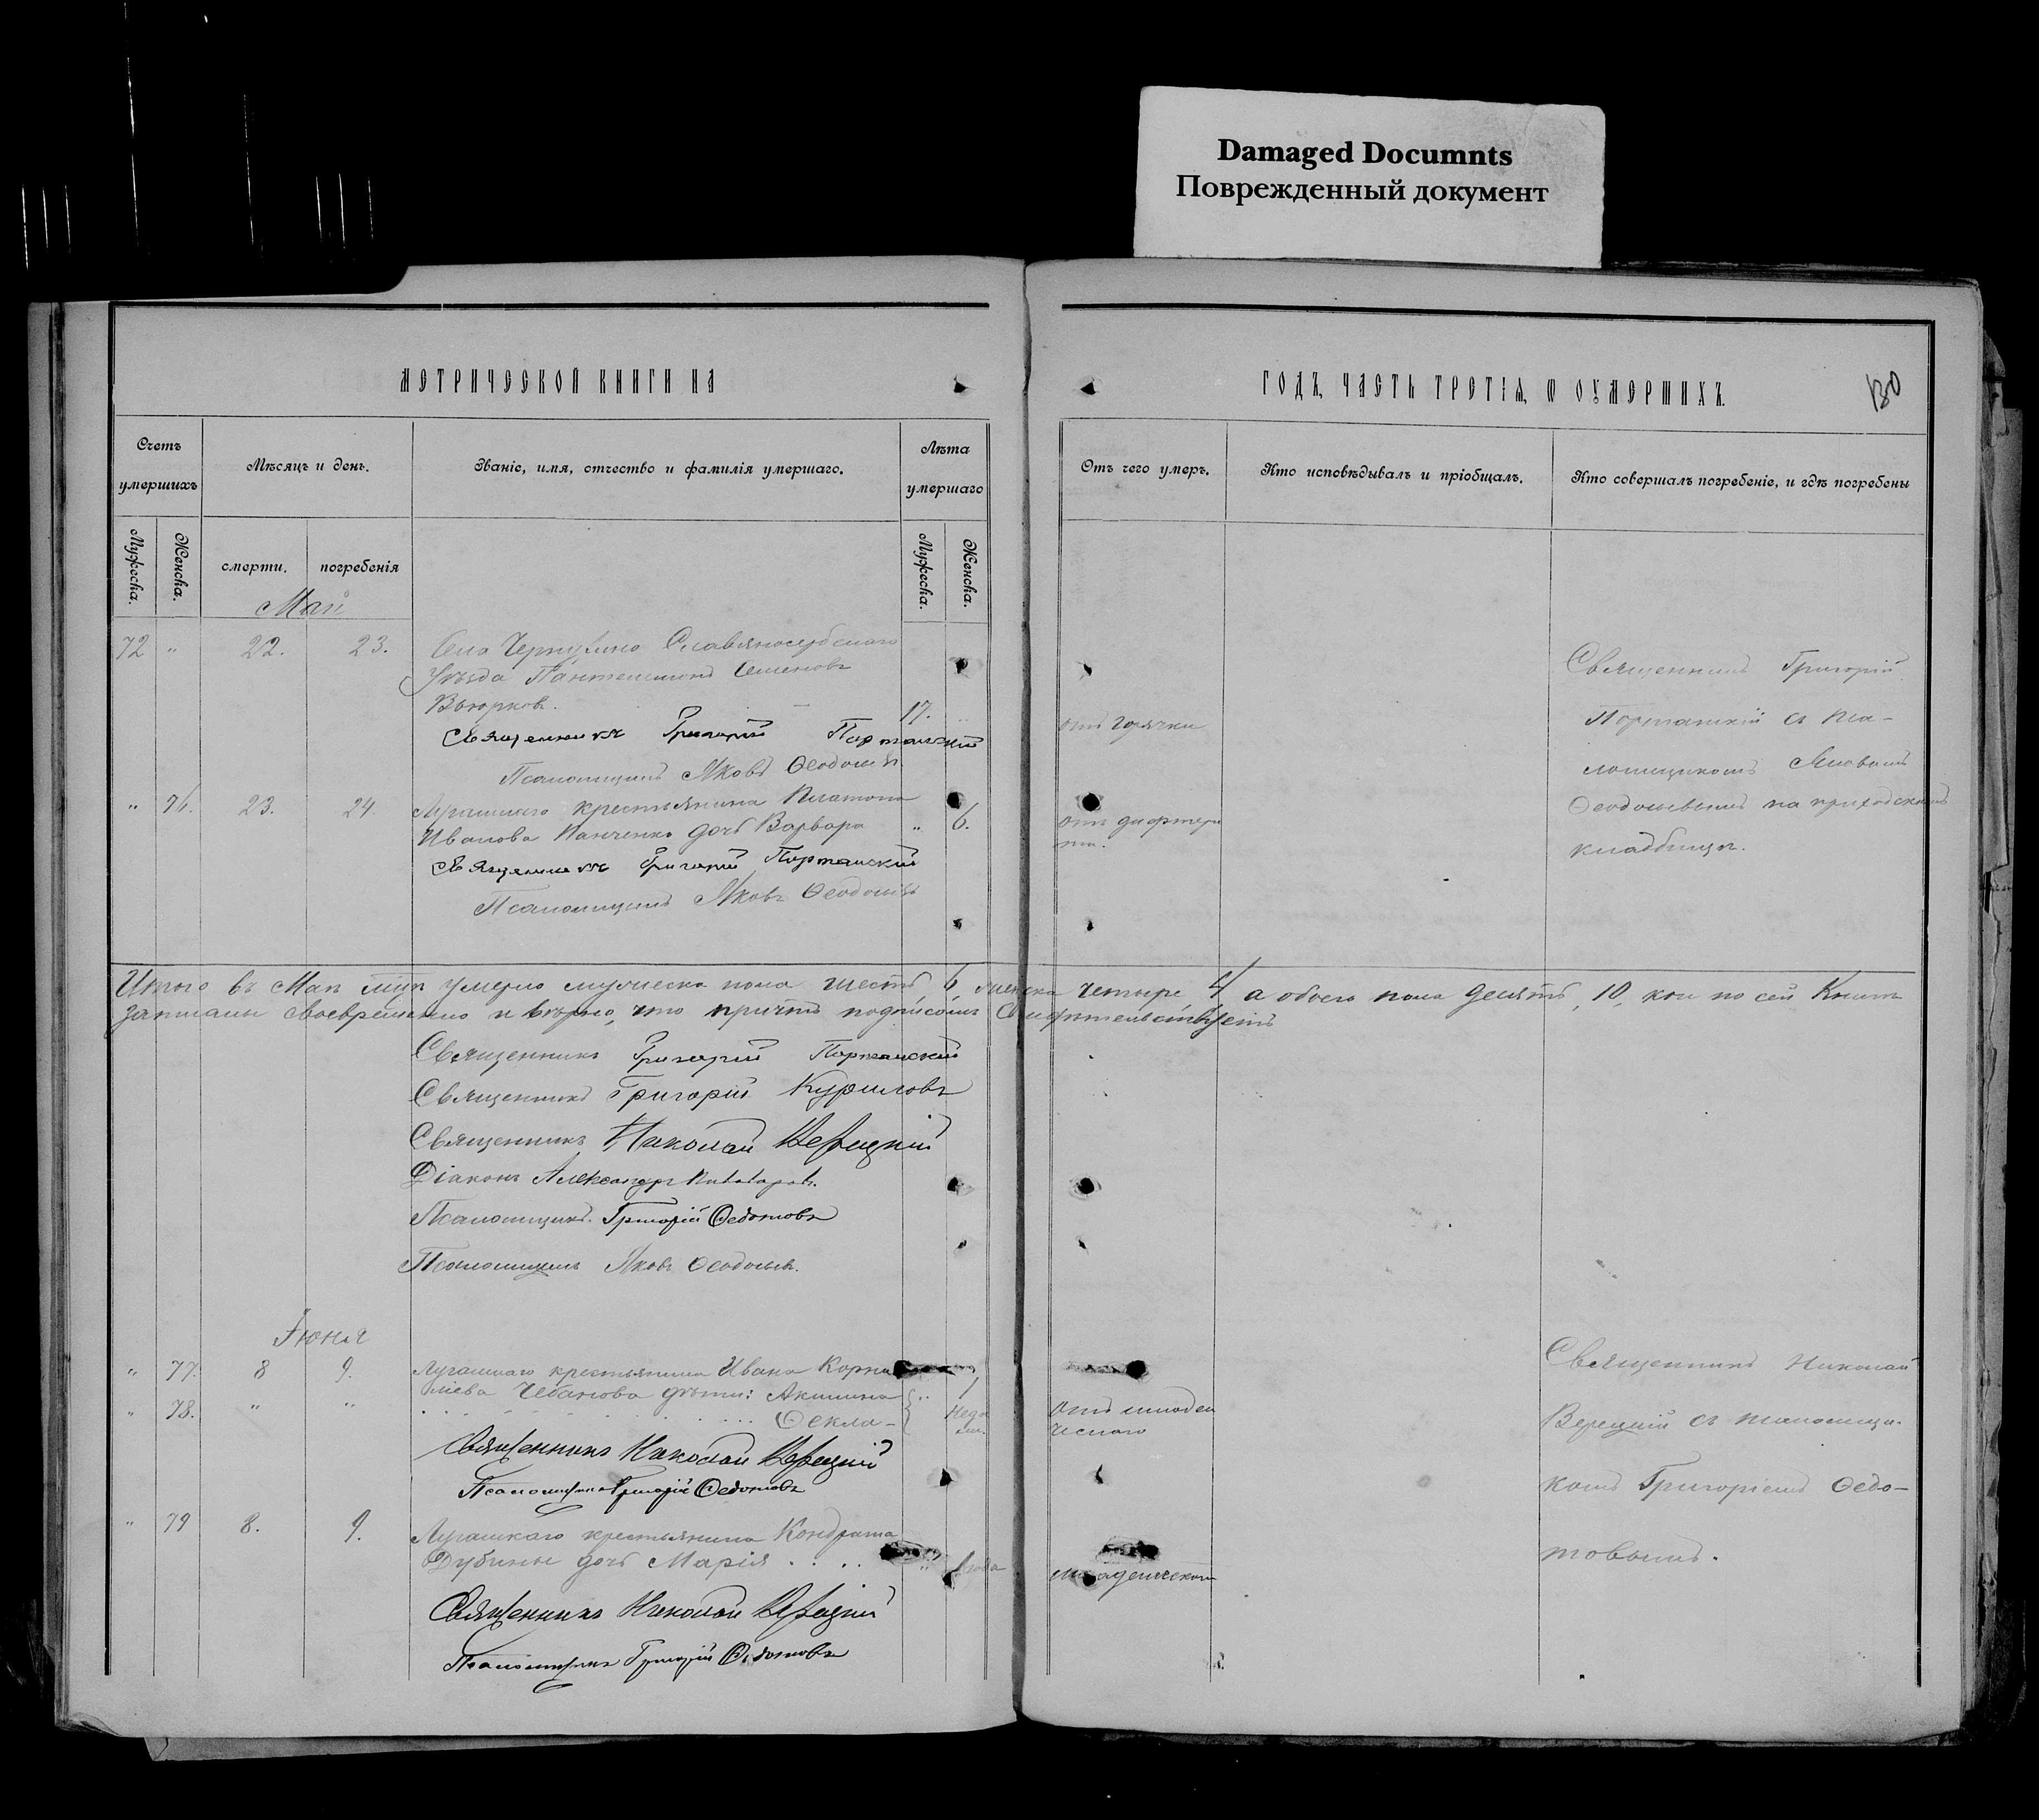 Damaged Documnts
Поврежденный документ
МЕТРИЧЕСКОЙ КНИГИ НА
ГОДЪ, ЧАСТЬ ТРЕТІЯ, Ѡ ОУМЕРШИХЪ.
130
Счетъ умершихъ
Мѣсяцъ и день.
Званіе, имя, отчество и фамилія умершаго.
Лѣта умершаго
Отъ чего умеръ.
Кто исповѣдывалъ и пріобщалъ.
Кто совершалъ погребеніе, и гдѣ погребены
Мужеска.
Женска.
смерти.
погребенія
Мужеска.
Женска.
Май
72 " 22. 23. Села Славяносербскаго
Уѣзда Пантелеимонъ Семеновъ
Вьюрковъ. 17. отъ горячки
Священникъ Григорій Портанскій
Псаломщикъ Яковъ Ѳеодосьевъ
Священникъ Григорій
Портанскій съ пса-
ломщикомъ Яковомъ
Ѳеодосьевымъ на приходскомъ
кладбищѣ.
" 76. 23. 24 Луганскаго крестьянина Платона
Иванова Панченко дочь Варвара " 6. отъ дифтери
та.
Священникъ Григорій Портанскій
Псаломщикъ Яковъ Ѳеодосьевъ
Итого въ Маѣ умерло мужеска пола шесть 6, женска четыре, 4, а обоего пола десять, 10, кои по сей Книгѣ
записаны своевременно и вѣрно, что причтъ подписомъ свидѣтельствуетъ
Священникъ Григорій Портанскій
Священникъ Григорій Куриловъ
Священникъ Николай Верецкій
Діаконъ Александръ
Псаломщикъ Григорій Ѳедотовъ
Псаломщикъ Яковъ Ѳеодосьевъ.
Іюня
" 77. 8 9. Луганскаго крестьянина Ивана Корни
ліева Чебанова дѣти: Акилина " 1
" 78. " " Ѳекла - Недѣ
Отъ младен
ческаго
Священникъ Николай Верецкій
Псаломщикъ Григорій Ѳедотовъ
Священникъ Николай
Верецкій съ псаломщи-
комъ Григоріемъ Ѳедо-
товымъ.
" 79 8. 9. Луганскаго крестьянина Кондрата
Дубины дочь Марія " года младенческой
Священникъ Николай Верецкій
Псаломщикъ Григорій Ѳедотовъ